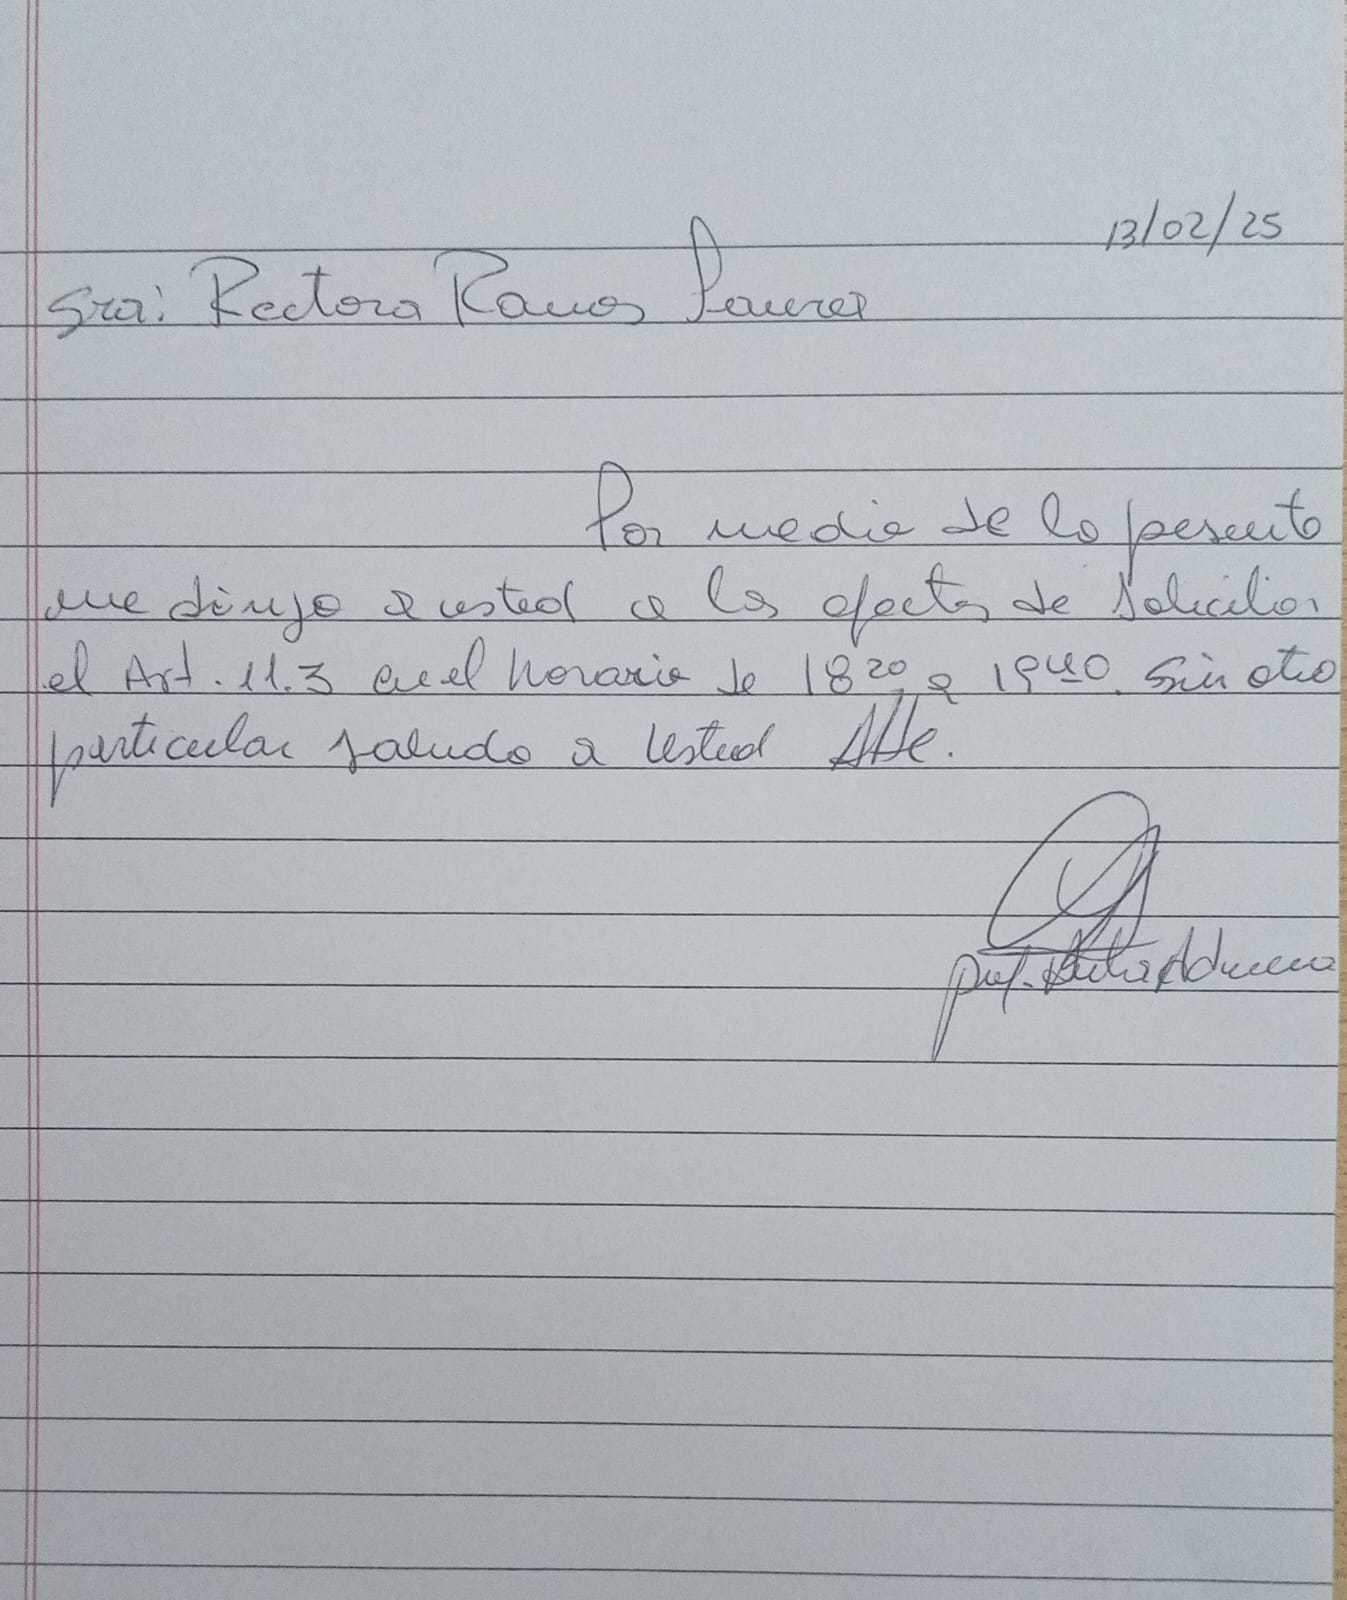 13/02/25
Sra: Rectora Ramos
Por medio de la pesente
me dirijo a usted a los efectos de solicitar
el Art. 11.3 en el horario de 18 20 a 19 40. Sin otro
particular saludo a Usted Atte.
prof.